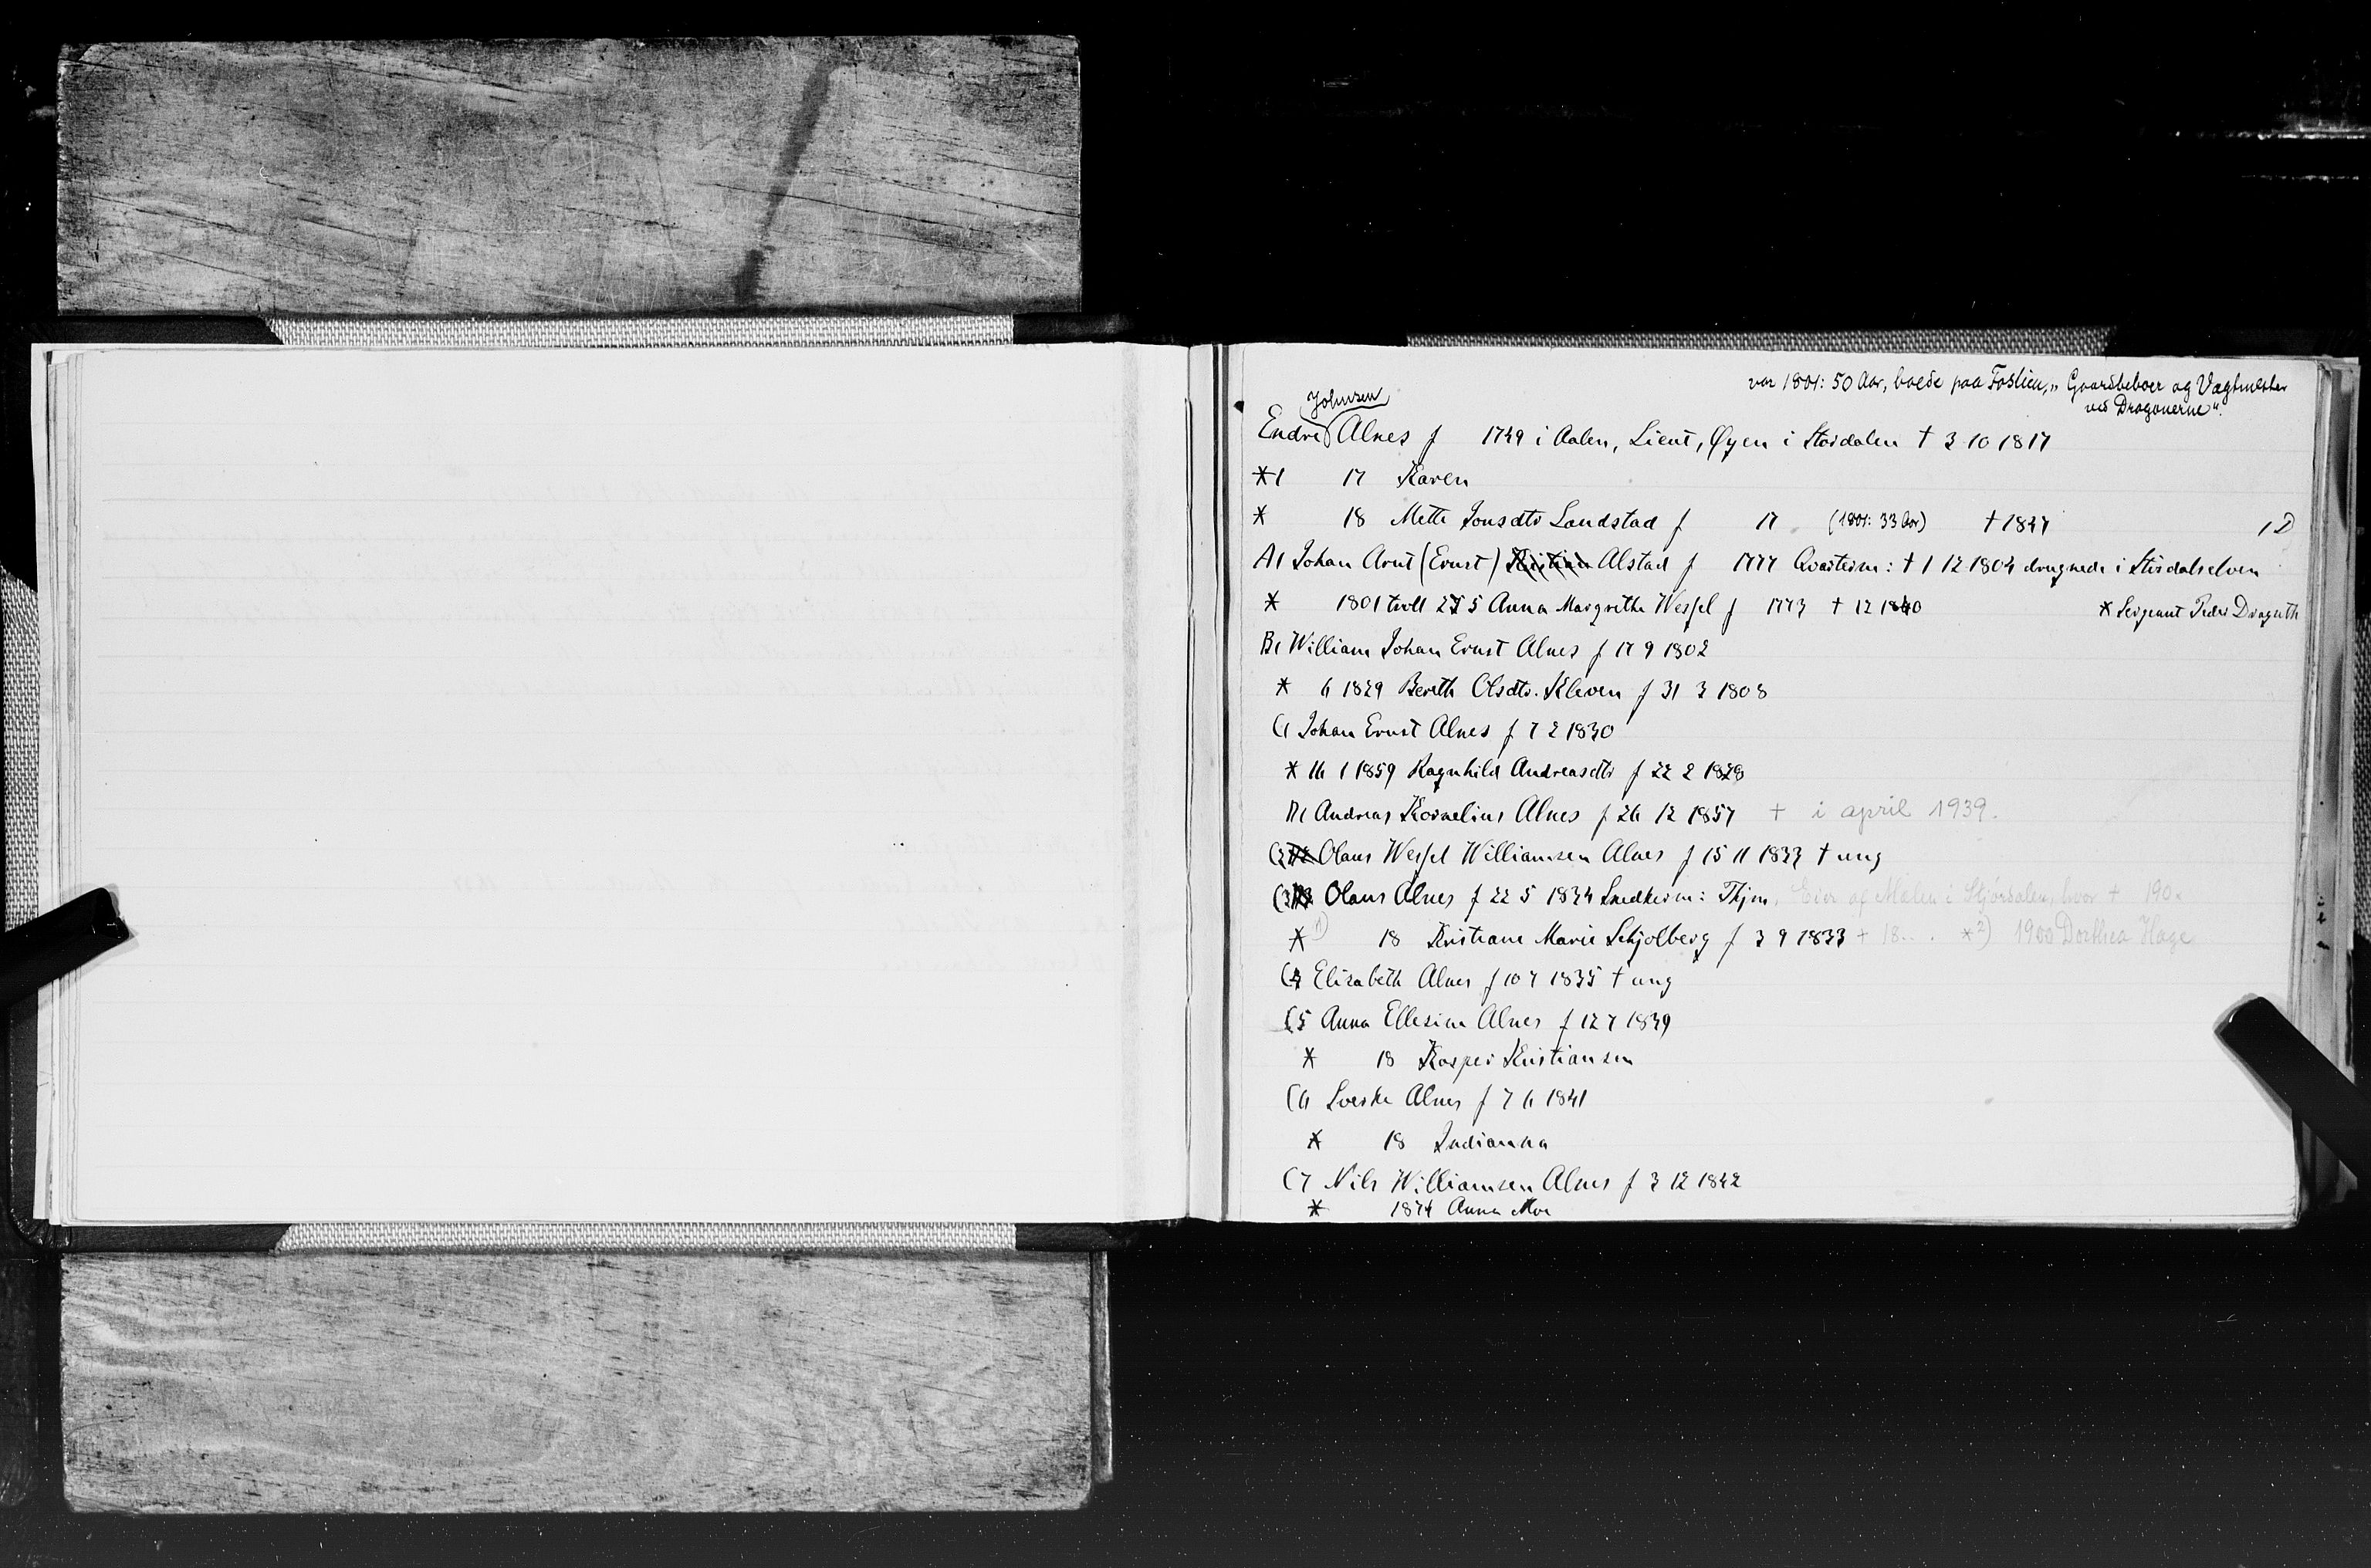 var 1801: 50 Aar, boede paa Foslien, „Gaardbeboer og Vagtmester
ved Dragonerne".
Johnsen
Endre Alnes f 1749 i Aalen, Lieut, Øyen i Størdalen † 3 10 1817
*1 17 Karen
* 18 Mette Jonsdtr Landstad f 17 (1801: 33 Aar) † 1847 1 D
A1 Johan Arnt (Ernst) Kristian Alstad f 1777 Qvarterm: † 1 12 1804 druknede i Stördalselven
* 1801 trol 25 5 Anna Margrethe Wessel f 1773 † 12 1840 * Sergeant Peder Draguth
B1 William Johan Ernst Alnes f 17 9 1802
* 6 1829 Bereth Olsdtr. Kleven f 31 3 1808
C1 Johan Ernst Alnes f 7 2 1830
* 16 1 1859 Ragnhild Andreasdtr f 22 2 1828
D1 Andreas Kornelius Alnes f 26 12 1857 † i april 1939.
C2 Olaus Wessel Williamsen Alnes f 15 11 1833 † ung
C3 Olaus Alnes f 22 5 1834 Snedkerm: Thjem, Eier af Mælen i Stjørdalen, hvor † 190.
* 1) 18 Kristiane Marie Schjolberg f 3 9 1833 † 18.. . * 2) 1900 Dorthea Hage
C4 Elizabeth Alnes f 10 7 1835 † ung
C5 Anna Ellesine Alnes f 12 7 1839
* 18 Kasper Kristiansen
C6 Lverske Alnes f 7 6 1841
* 18 Indianna
C7 Nils Williamsen Alnes f 3 12 1842
* 1874 Anna Moe